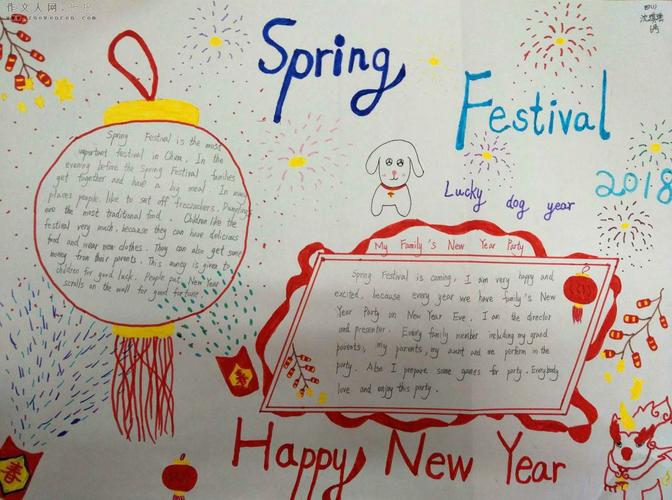 作文人网
www.zuowenren.com
Spring
Festival
2018
Lucky dog year
Spring Festival is the most
important festival in China. In the
evening before the Spring Festival, families
get together and have a big meal. In many
places people like to set off firecrackers. Dumplings
are the most traditional food. Children like the
festival very much, because they can have delicious
food and wear new clothes. They can also get some
money from their parents. This money is given to
children for good luck. People put New Year
scrolls on the wall for good fortune.
My Family's New Year Party
Spring Festival is coming, I am very happy and
excited, because every year we have family's New
Year Party on New Year Eve. I am the director
and presenter. Every family member including my grand
parents, my parents, my aunt and me perform in the
party. Also I prepare some games for party. Everybody
love and enjoy this party.
春
春
Happy New Year